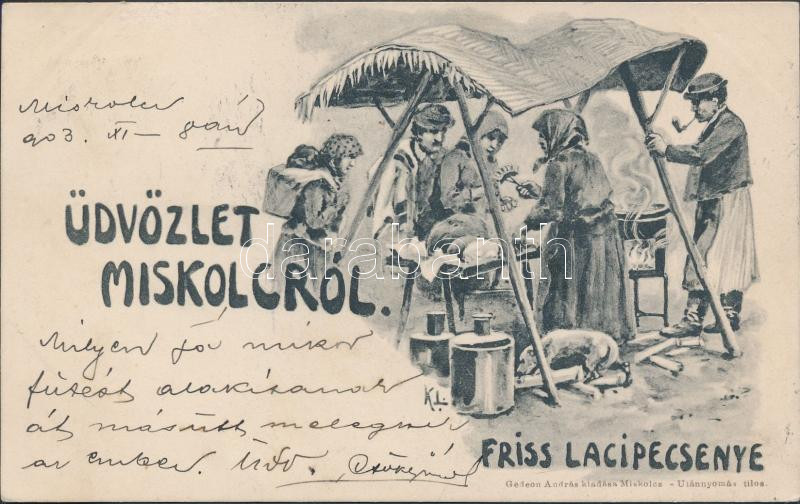 Miskolcz
903. XI – 8 án
ÜDVÖZLET
MISKOLCRÓL.
darabanth
Milyen jó mikor
fütését alakitanak
át másutt melegszik
az ember. Üdv.
K.L.
FRISS LACIPECSENYE
Gedeon András kiadása Miskolcz – Utánnyomás tilos.